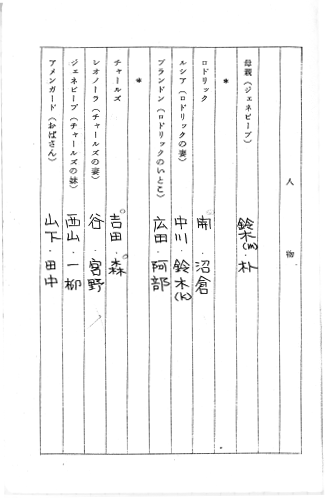 人物
母親（ジェネビーブ） 鈴木(m)・朴
*
ロドリック 南・沼倉
ルシア（ロドリックの妻） 中川・鈴木(k)
ブランドン（ロドリックのいとこ） 広田・阿部
*
チャールズ 吉田・森
レオノーラ（チャールズの妻） 谷・宮野
ジェネビーブ（チャールズの妹） 西山・一柳
アメンガード（おばさん） 山下・田中